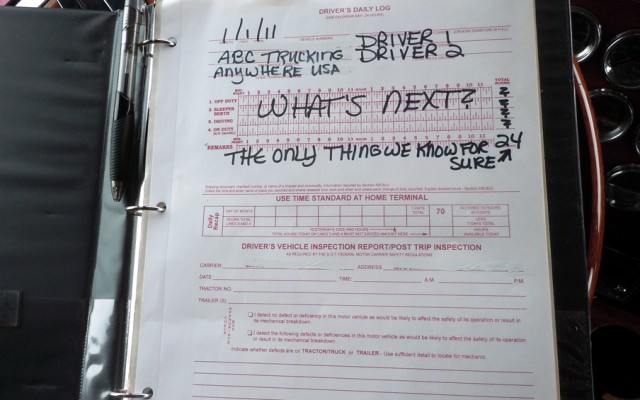 DRIVER'S DAILY LOG
1/1/11
ABC TRUCKING DRIVER 1
ANYWHERE USA DRIVER 2
TOTAL HOURS
1. OFF DUTY
2. SLEEPER BERTH
3. DRIVING
4. ON DUTY
WHAT'S NEXT?
? ? ? ?
REMARKS
THE ONLY THING WE KNOW FOR 24
SURE
USE TIME STANDARD AT HOME TERMINAL
Daily Recap
DAY OF MONTH
70
DRIVER'S VEHICLE INSPECTION REPORT/POST TRIP INSPECTION
AS REQUIRED BY THE D.O.T. FEDERAL MOTOR CARRIER SAFETY REGULATIONS
CARRIER ADDRESS
DATE TIME: A.M. P.M.
TRACTOR NO.
TRAILER (S)
I detect no defect or deficiency in this motor vehicle as would be likely to affect the safety of its operation or result in
its mechanical breakdown.
I detect the following defects or deficiencies in this motor vehicle as would be likely to affect the safety of its operation
or result in its mechanical breakdown.
Indicate whether defects are on TRACTOR/TRUCK or TRAILER - Use sufficient detail to locate for mechanic.